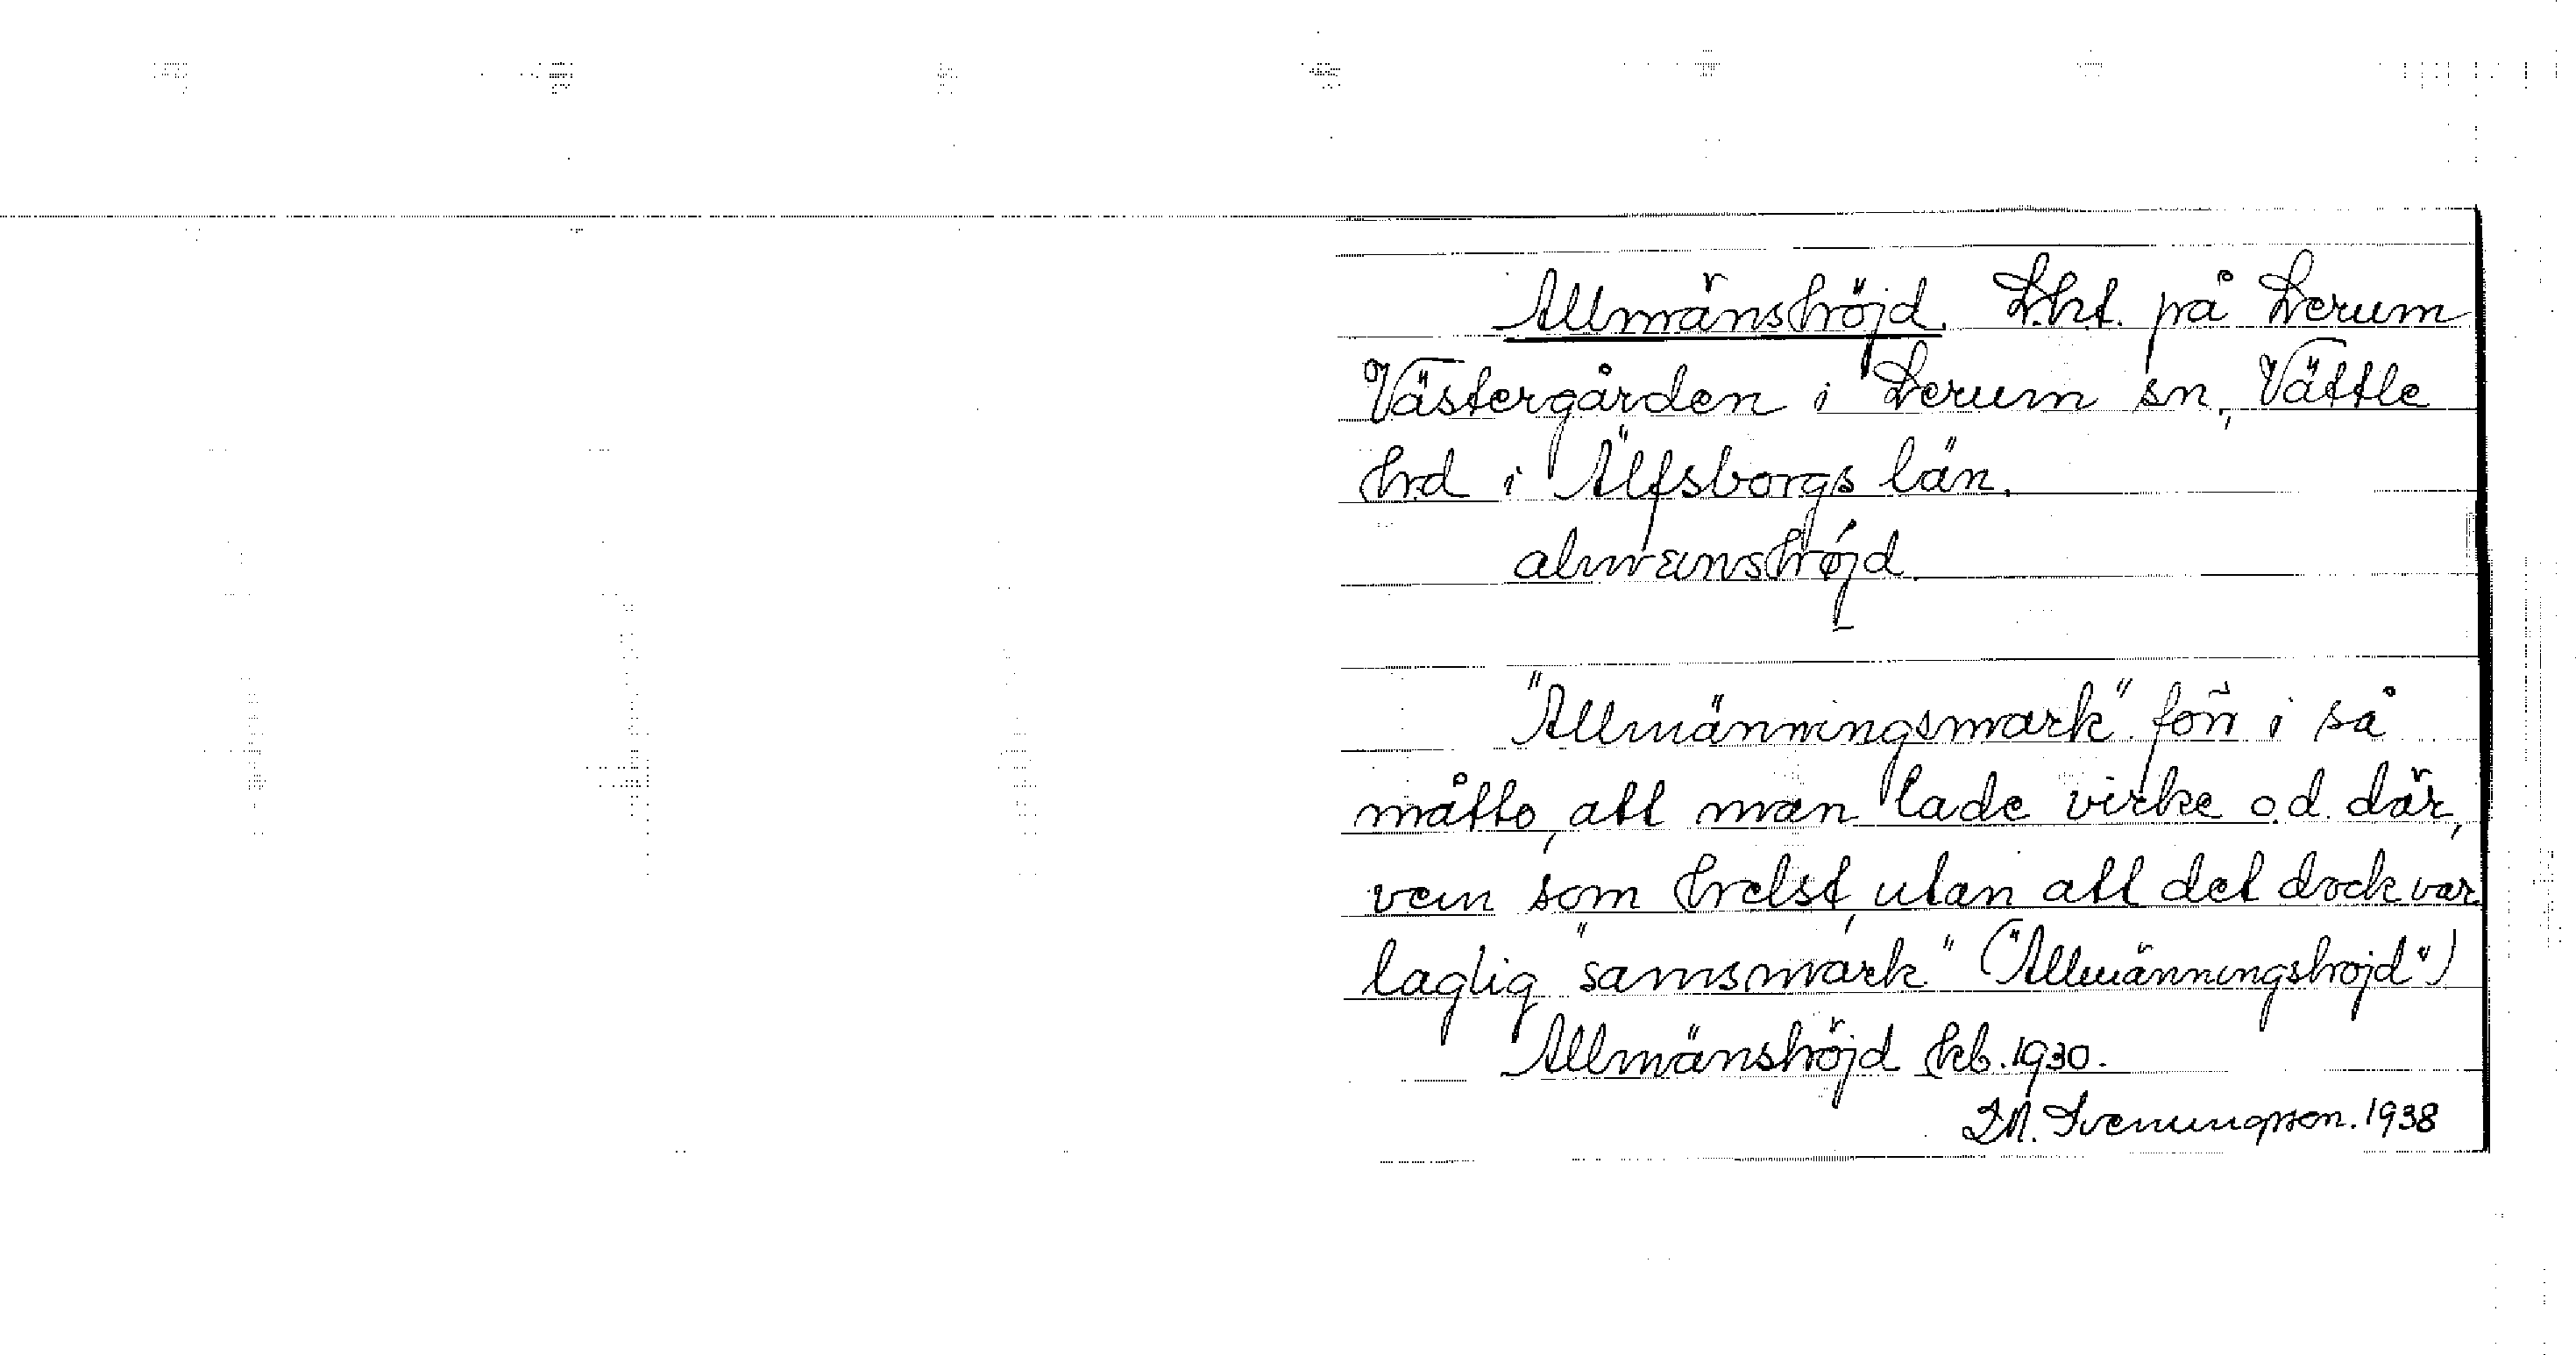 Allmänshöjd. L.ht. på Lerum
Västergården i Lerum sn, Vättle
hrd i Älfsborgs län.
almɛunshøjd
"Allmänningsmark" förr i så
måtto, att man lade virke o.d. där,
vem som helst, utan att det dock var
laglig "samsmark" ("Allmänningshöjd")
Allmänshöjd kb. 1930.
Svenungsson. 1938